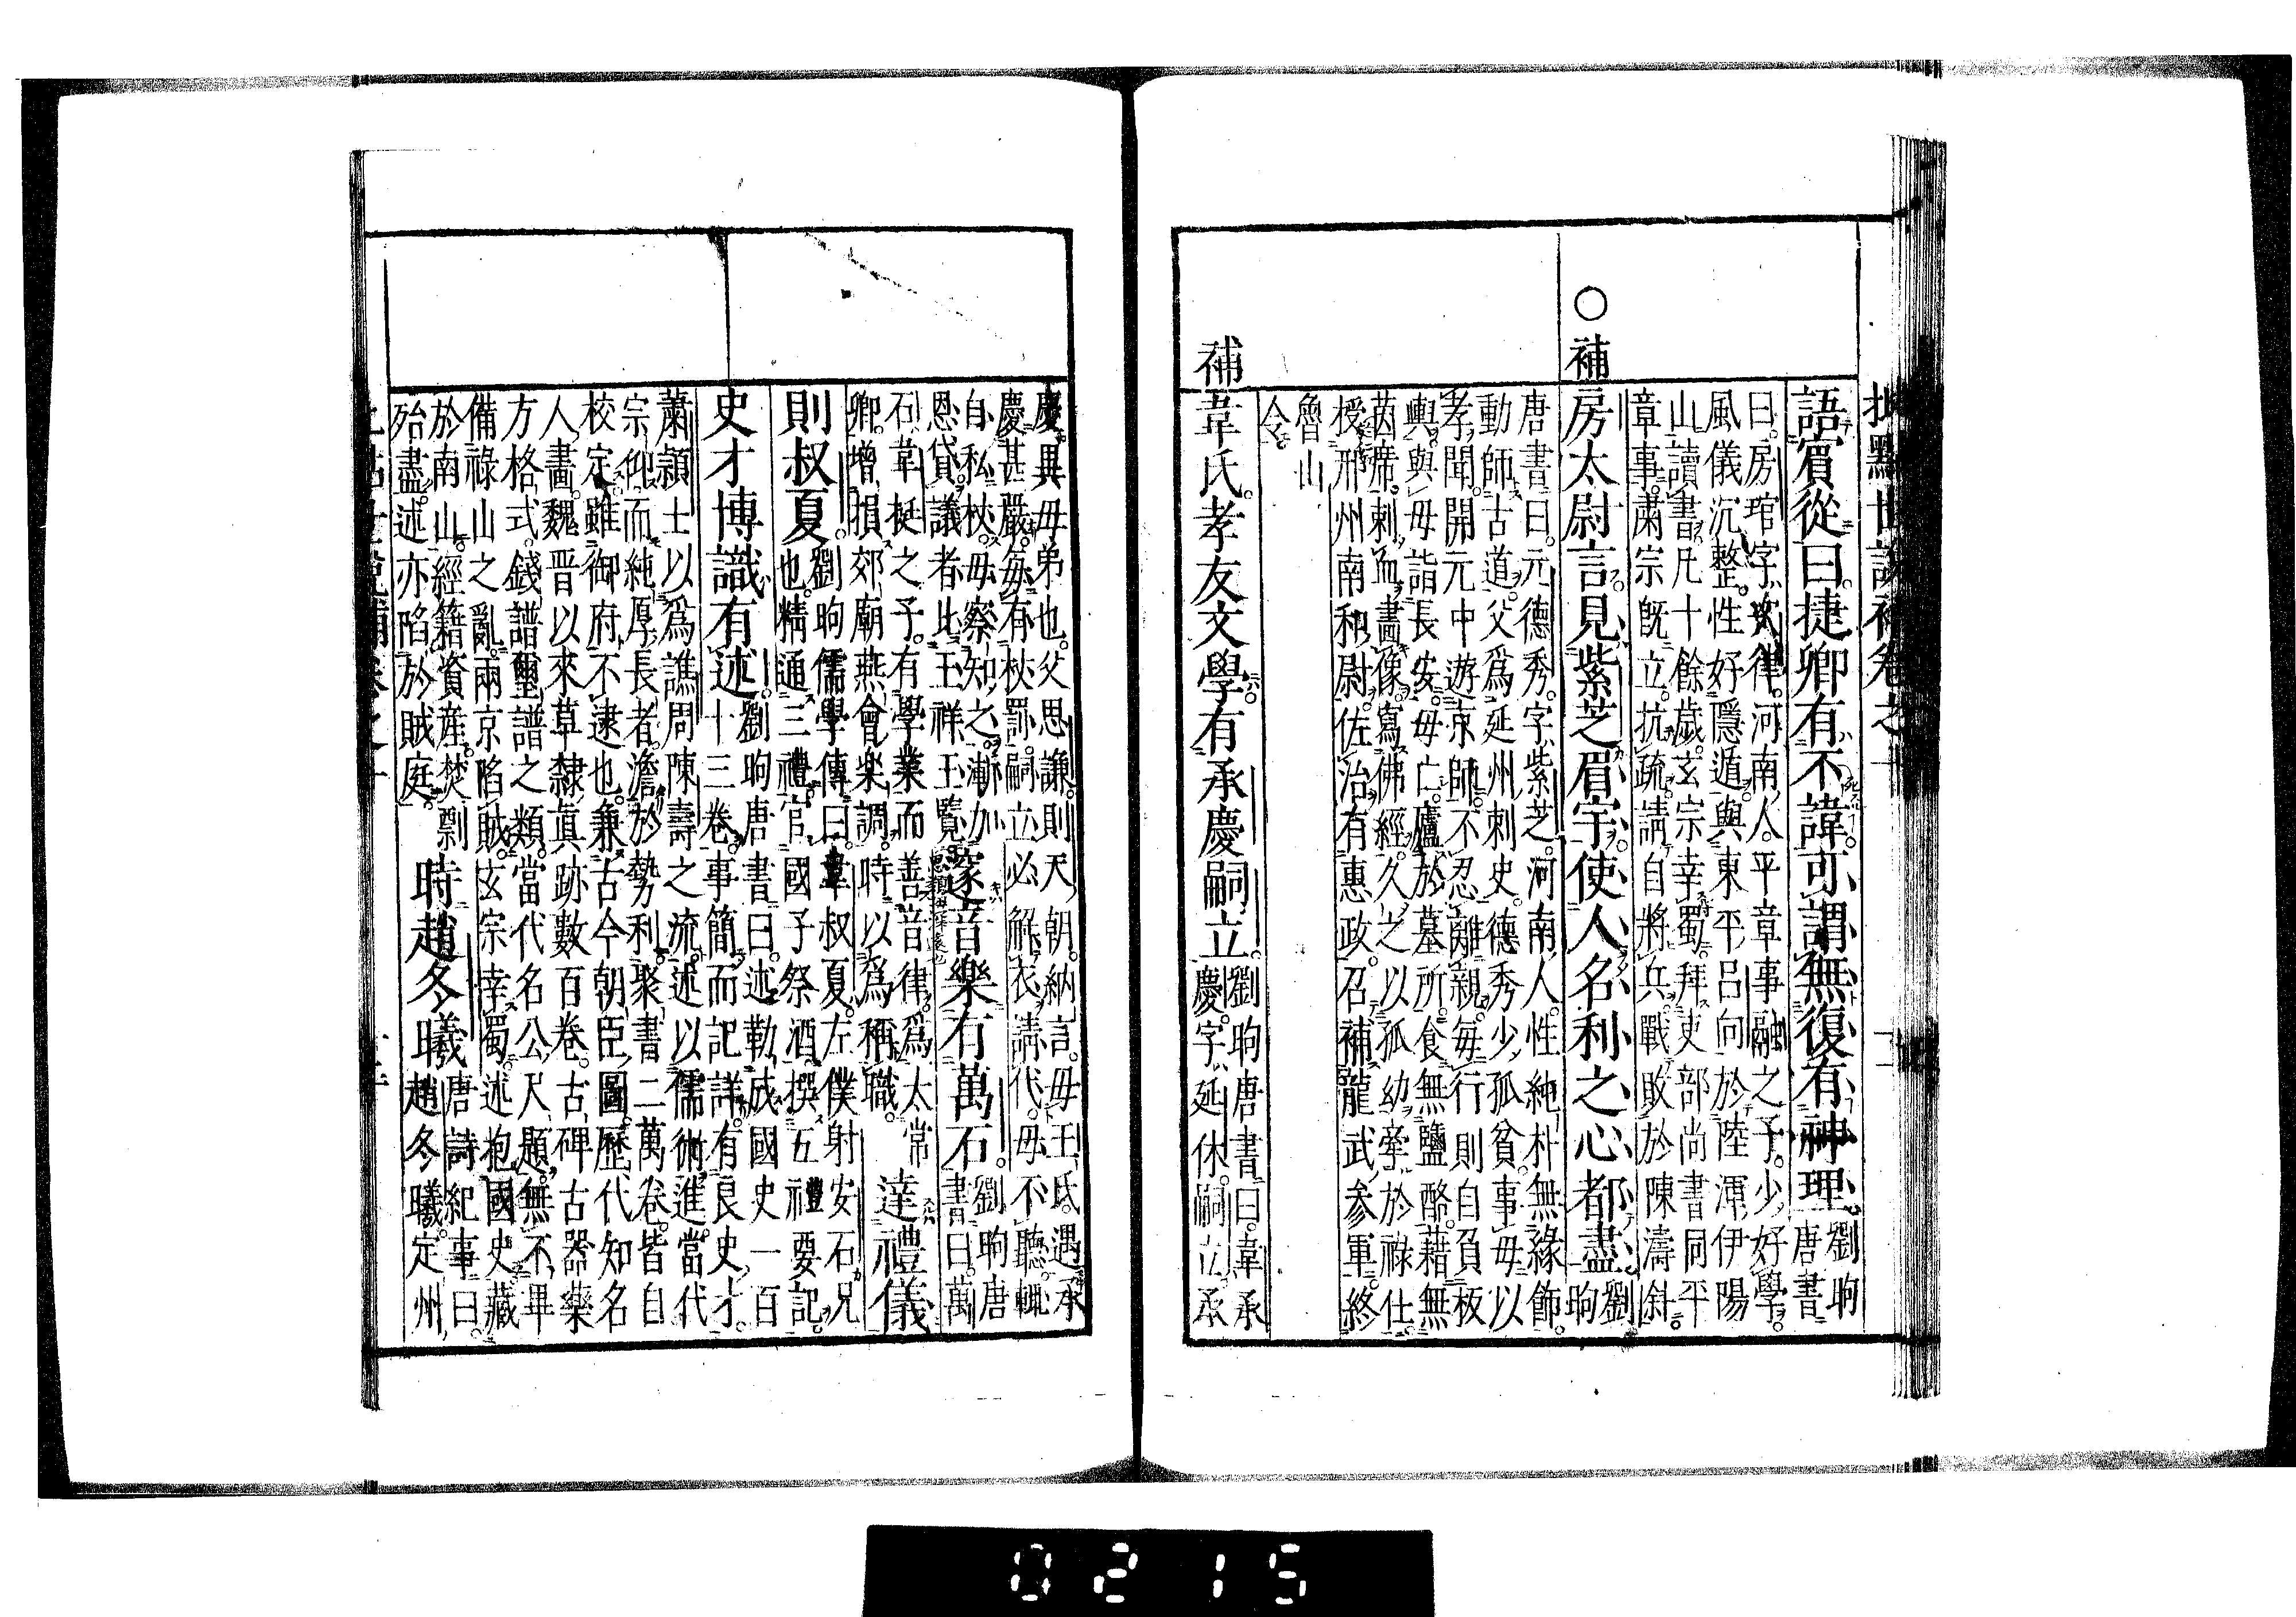 批點世說補卷之
語賓從曰捷卿有不諱可謂無復有神理
劉昫
唐書
曰房琯字次律河南人平章事融之子少好學
風儀沉整性好隱遁與東平呂向於陸渾伊陽
山讀書凡十餘歲玄宗幸蜀拜吏部尚書同平
章事肅宗既立抗疏請自將兵戰敗於陳濤斜
○補房太尉言見紫芝眉宇使人名利之心都盡
劉
昫
唐書曰元德秀字紫芝河南人性純朴無緣飾
動師古道父爲延州刺史德秀少孤貧事母以
孝聞開元中遊京師不忍離親每行則自負板
輿與母詣長安母亡廬於墓所食無鹽酪藉無
茵席刺血畫像寫佛經久之以孤幼牽於祿仕
授邢州南和尉佐治有惠政召補龍武參軍終
魯山
令
補韋氏孝友文學有承慶嗣立
劉昫唐書曰韋承
慶字延休嗣立承
慶異母弟也父思謙則天朝納言母王氏遇承
慶甚嚴每有杖罰嗣立必解衣請代母不聽輒
自私杖母察知之漸加
恩貸議者比王祥王覽
邃音樂有萬石
劉昫唐
書曰萬
石韋挺之子有學業而善音律爲太常
卿增損郊廟燕會樂調時以爲稱職
達禮儀
則叔夏
劉昫儒學傳曰韋叔夏左僕射安石兄
也精通三禮官國子祭酒撰五禮要記
史才博識有述
劉昫唐書曰述勒成國史一百
十三卷事簡而記詳有良史才
蕭頴士以爲譙周陳壽之流述以儒術進當代
宗仰而純厚長者澹於勢利聚書二萬卷皆自
校定雖御府不逮也兼古今朝臣圖歷代知名
人畫魏晋以來草隸真跡數百卷古碑古器藥
方格式錢譜璽譜之類當代名公尺題無不畢
備祿山之亂兩京陷賊玄宗幸蜀述抱國史藏
於南山經籍資産焚剽
殆盡述亦陷於賊庭
時趙冬曦
唐詩紀事曰
趙冬曦定州
0215